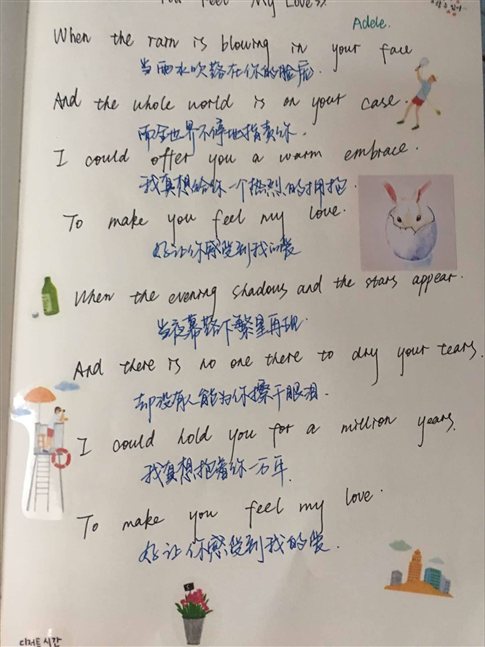 You Feel My Love》
Adele.
When the rain is blowing in your face
当雨水吹落在你的脸庞.
And the whole world is on your case.
而全世界不停地指责你.
I could offer you a warm embrace.
我真想给你一个热烈的拥抱
To make you feel my love.
好让你感觉到我的爱
When the evening shadows and the stars appear.
当夜幕落下繁星再现
And there is no one there to dry your tears.
却没有人能为你擦干眼泪.
I could hold you for a million years.
我真想抱着你一万年.
To make you feel my love.
好让你感觉到我的爱.
디저트 시간